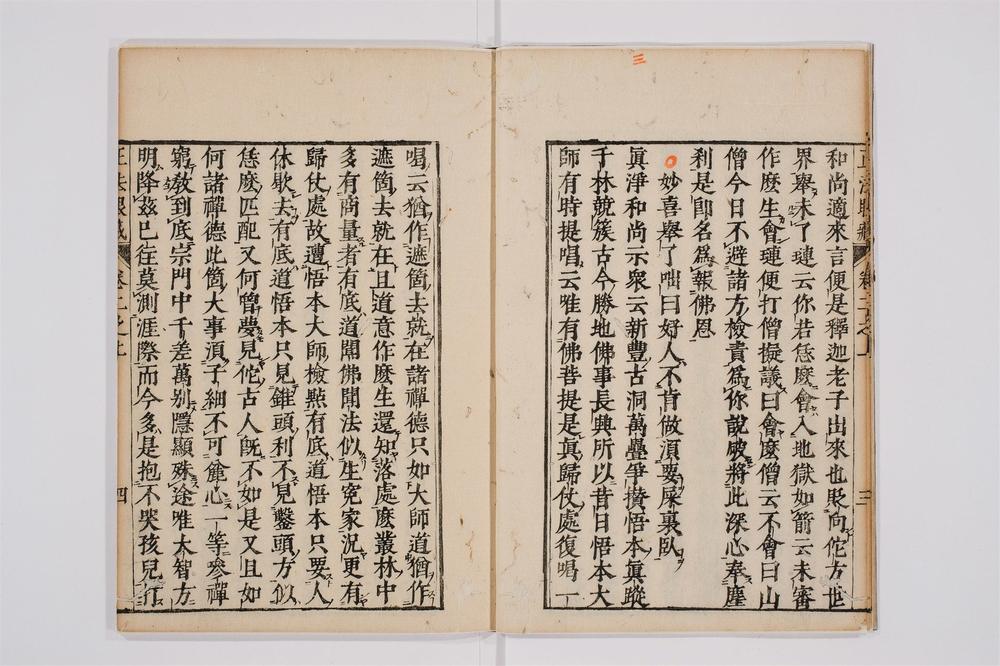 三
和尚適來言便是釋迦老子出來也貶向佗方世
界舉未了璉云你若恁麼會入地獄如箭云未審
作麼生會璉便打僧擬議曰會麼僧云不會曰山
僧今日不避諸方檢責爲你說破將此深心奉塵
刹是卽名爲報佛恩
妙喜舉了咄曰好人不肯做須要屎裏臥
眞淨和尚示衆云新豐古洞萬疊爭攅悟本眞蹤
千林競簇古今勝地佛事長興所以昔日悟本大
師有時提唱云唯有佛菩提是眞歸仗處復喝一
三
喝云猶作遮箇去就在諸禪德只如大師道猶作
遮箇去就在且道意作麼生還知落處麼叢林中
多有商量者有底道聞佛聞法似生寃家況更有
歸仗處故遭悟本大師檢㸃有底道悟本只要人
休歇去有底道悟本只見錐頭利不見鑿頭方似
恁麼匹配又何曾夢見佗古人旣不如是又且如
何諸禪德此箇大事須子細不可麁心一等參禪
窮敎到底宗門中千差萬別隱顯殊途唯大智方
明降兹已往莫測涯際而今多是抱不哭孩兒打
四